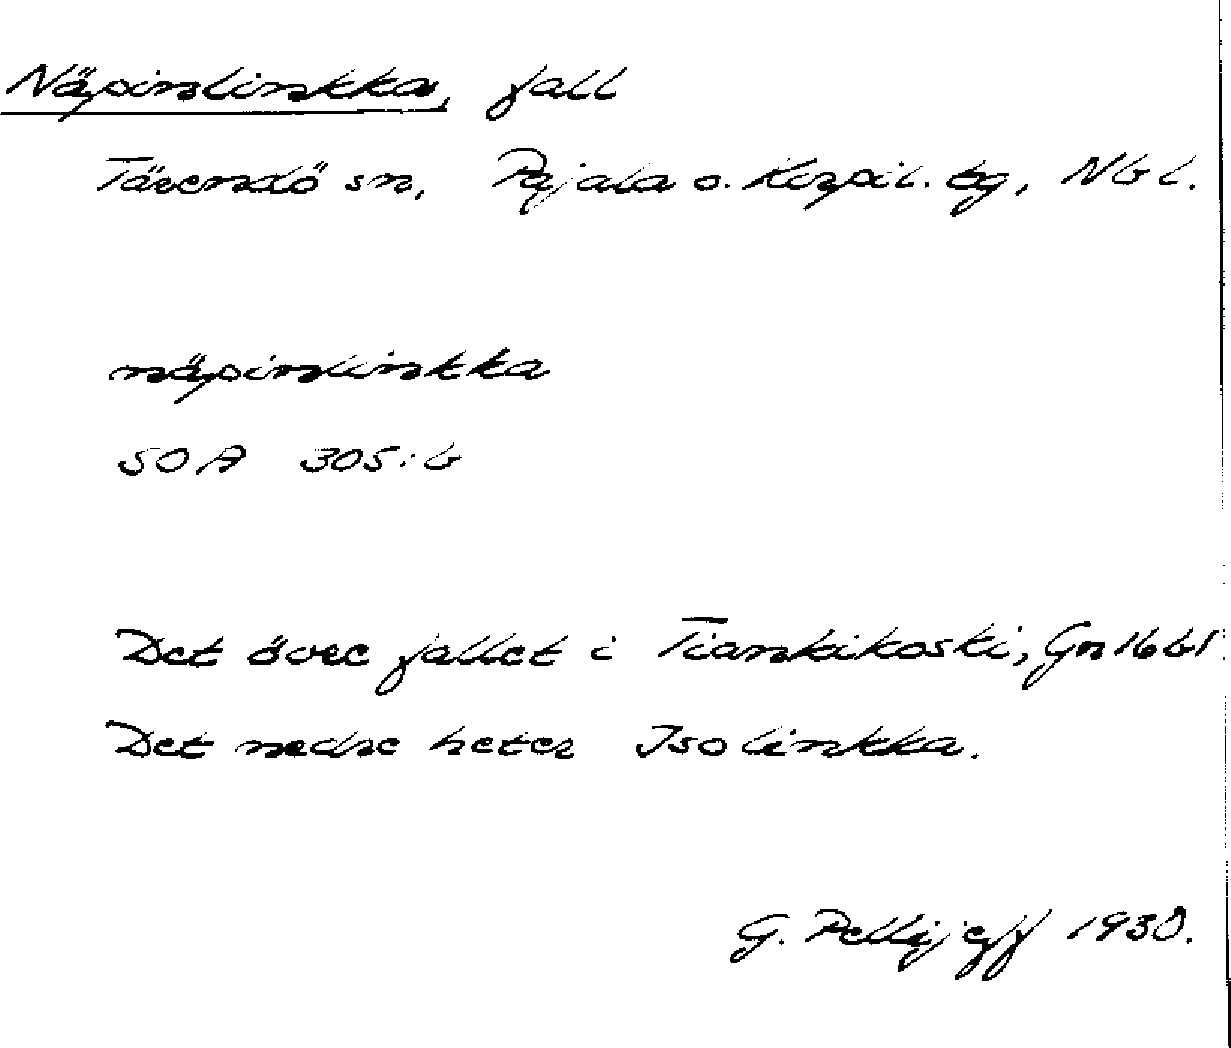 Näpinlinkka, fall
Tärendö sn, Pajala o. Korpil. tg, Nbl.
näpinlinkka
SOA 305:6
Det övre fallet i Tiankikoski, Gn 1661.
Det nedre heter Isolinkka.
G. Pellijeff 1930.